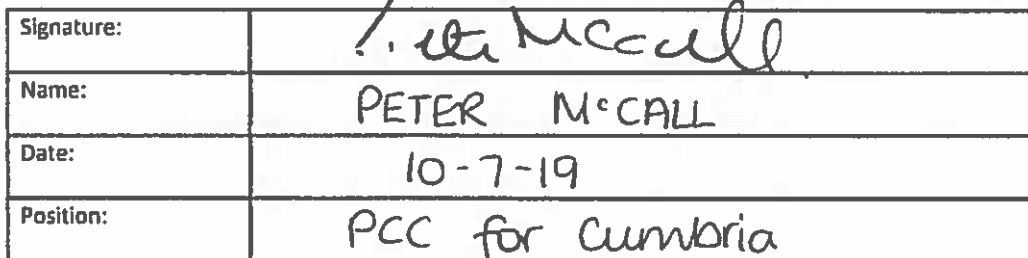 Signature: Peter McCall
Name: PETER McCALL
Date: 10-7-19
Position: PCC for Cumbria